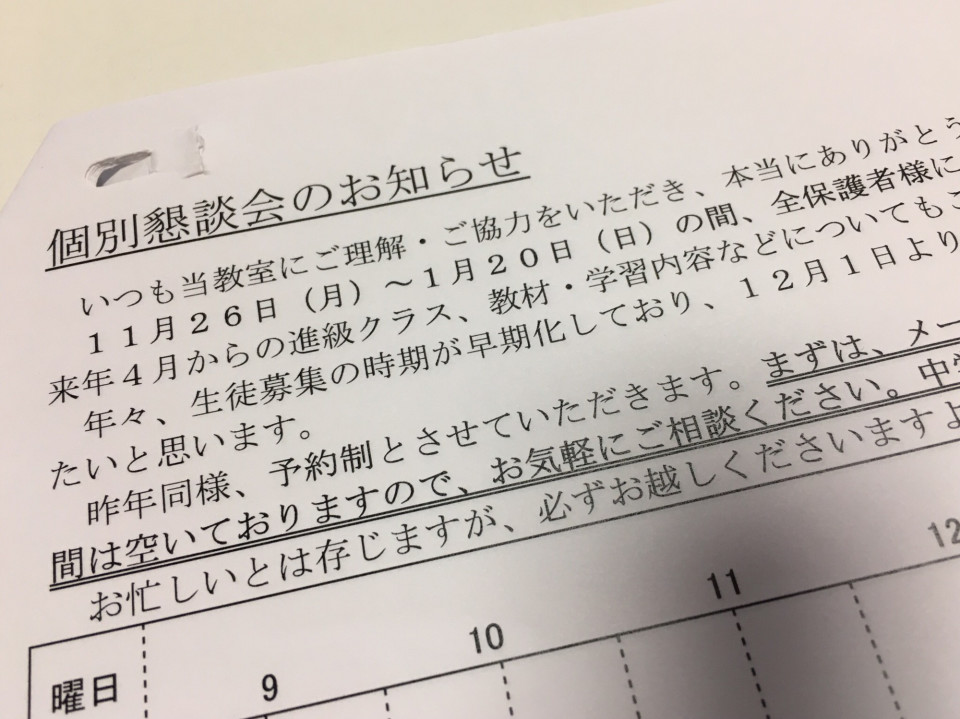 個別懇談会のお知らせ
いつも当教室にご理解・ご協力をいただき、本当にありがとう
11月26日（月）～1月20日（日）の間、全保護者様に
来年4月からの進級クラス、教材・学習内容などについてもご
年々、生徒募集の時期が早期化しており、12月1日より
たいと思います。
昨年同様、予約制とさせていただきます。まずは、メー
間は空いておりますので、お気軽にご相談ください。中学
お忙しいとは存じますが、必ずお越しくださいますよ
曜日 9 10 11 12